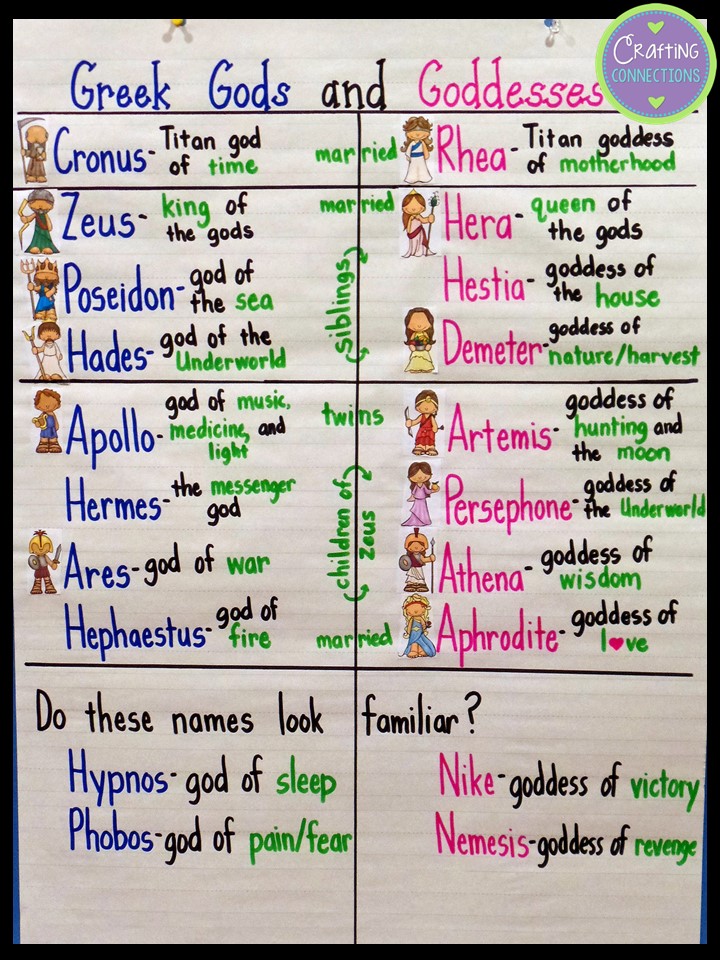 Crafting
CONNECTIONS
Greek Gods and Goddesses
Cronus- Titan god
of time
married
Rhea- Titan goddess
of motherhood
Zeus- king of
the gods
married
Hera- queen of
the gods
siblings
Poseidon- god of
the sea
Hestia- goddess of
the house
Hades- god of the
Underworld
Demeter- goddess of
nature/harvest
Apollo- god of music,
medicine, and
light
twins
Artemis- goddess of
hunting and
the moon
Hermes- the messenger
god
children of
Zeus
Persephone- goddess of
the Underworld
Ares- god of war
Athena- goddess of
wisdom
Hephaestus- god of
fire
married
Aphrodite- goddess of
l♥ve
Do these names look familiar?
Hypnos- god of sleep
Nike- goddess of victory
Phobos- god of pain/fear
Nemesis- goddess of revenge